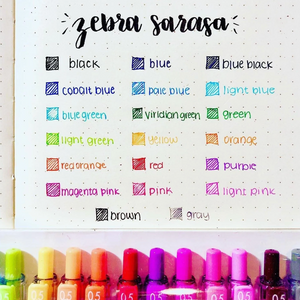 zebra sarasa
black blue blue black
cobalt blue pale blue light blue
blue green viridian green green
light green yellow orange
red orange red purple
magenta pink pink light pink
brown gray
05 05 05 05 05 05 05 05 05